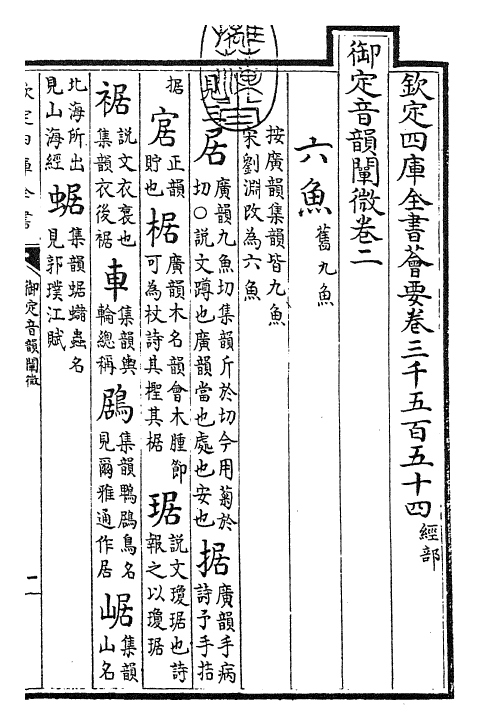 欽定四庫全書薈要卷三千五百五十四 經部
御定音韻闡微卷二
六魚 舊九魚
按廣韻集韻皆九魚
宋劉淵改為六魚
見 居 廣韻九魚切集韻斤於切今用菊於
切○說文蹲也廣韻當也處也安也 据 廣韻手病
詩予手拮
据 㝒 正韻
貯也 椐 廣韻木名韻會木腫節
可為杖詩其檉其椐 琚 說文瓊琚也詩
報之以瓊琚
裾 說文衣袌也
集韻衣後裾 車 集韻輿
輪總稱 鶋 集韻鴨鶋鳥名
見爾雅通作居 崌 集韻
山名
北海所出
見山海經 蜛 集韻蜛蝫蟲名
見郭璞江賦
欽定四庫全書
御定音韻闡微
二